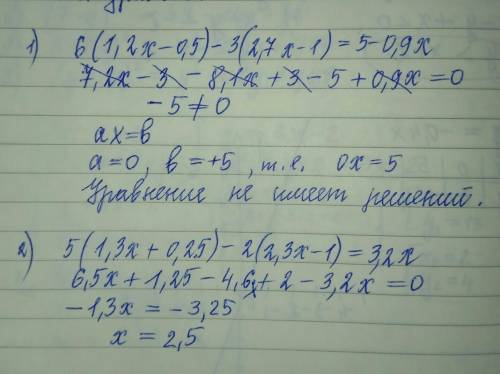 1) 6(1,2x-0,5)-3(2,7x-1)=5-0,9x
7,2x-3-8,1x+3-5+0,9x=0
-5≠0
ax=b
a=0, b=+5, т.е. 0x=5
Уравнение не имеет решений.
2) 5(1,3x+0,25)-2(2,3x-1)=3,2x
6,5x+1,25-4,6x+2-3,2x=0
-1,3x=-3,25
x=2,5